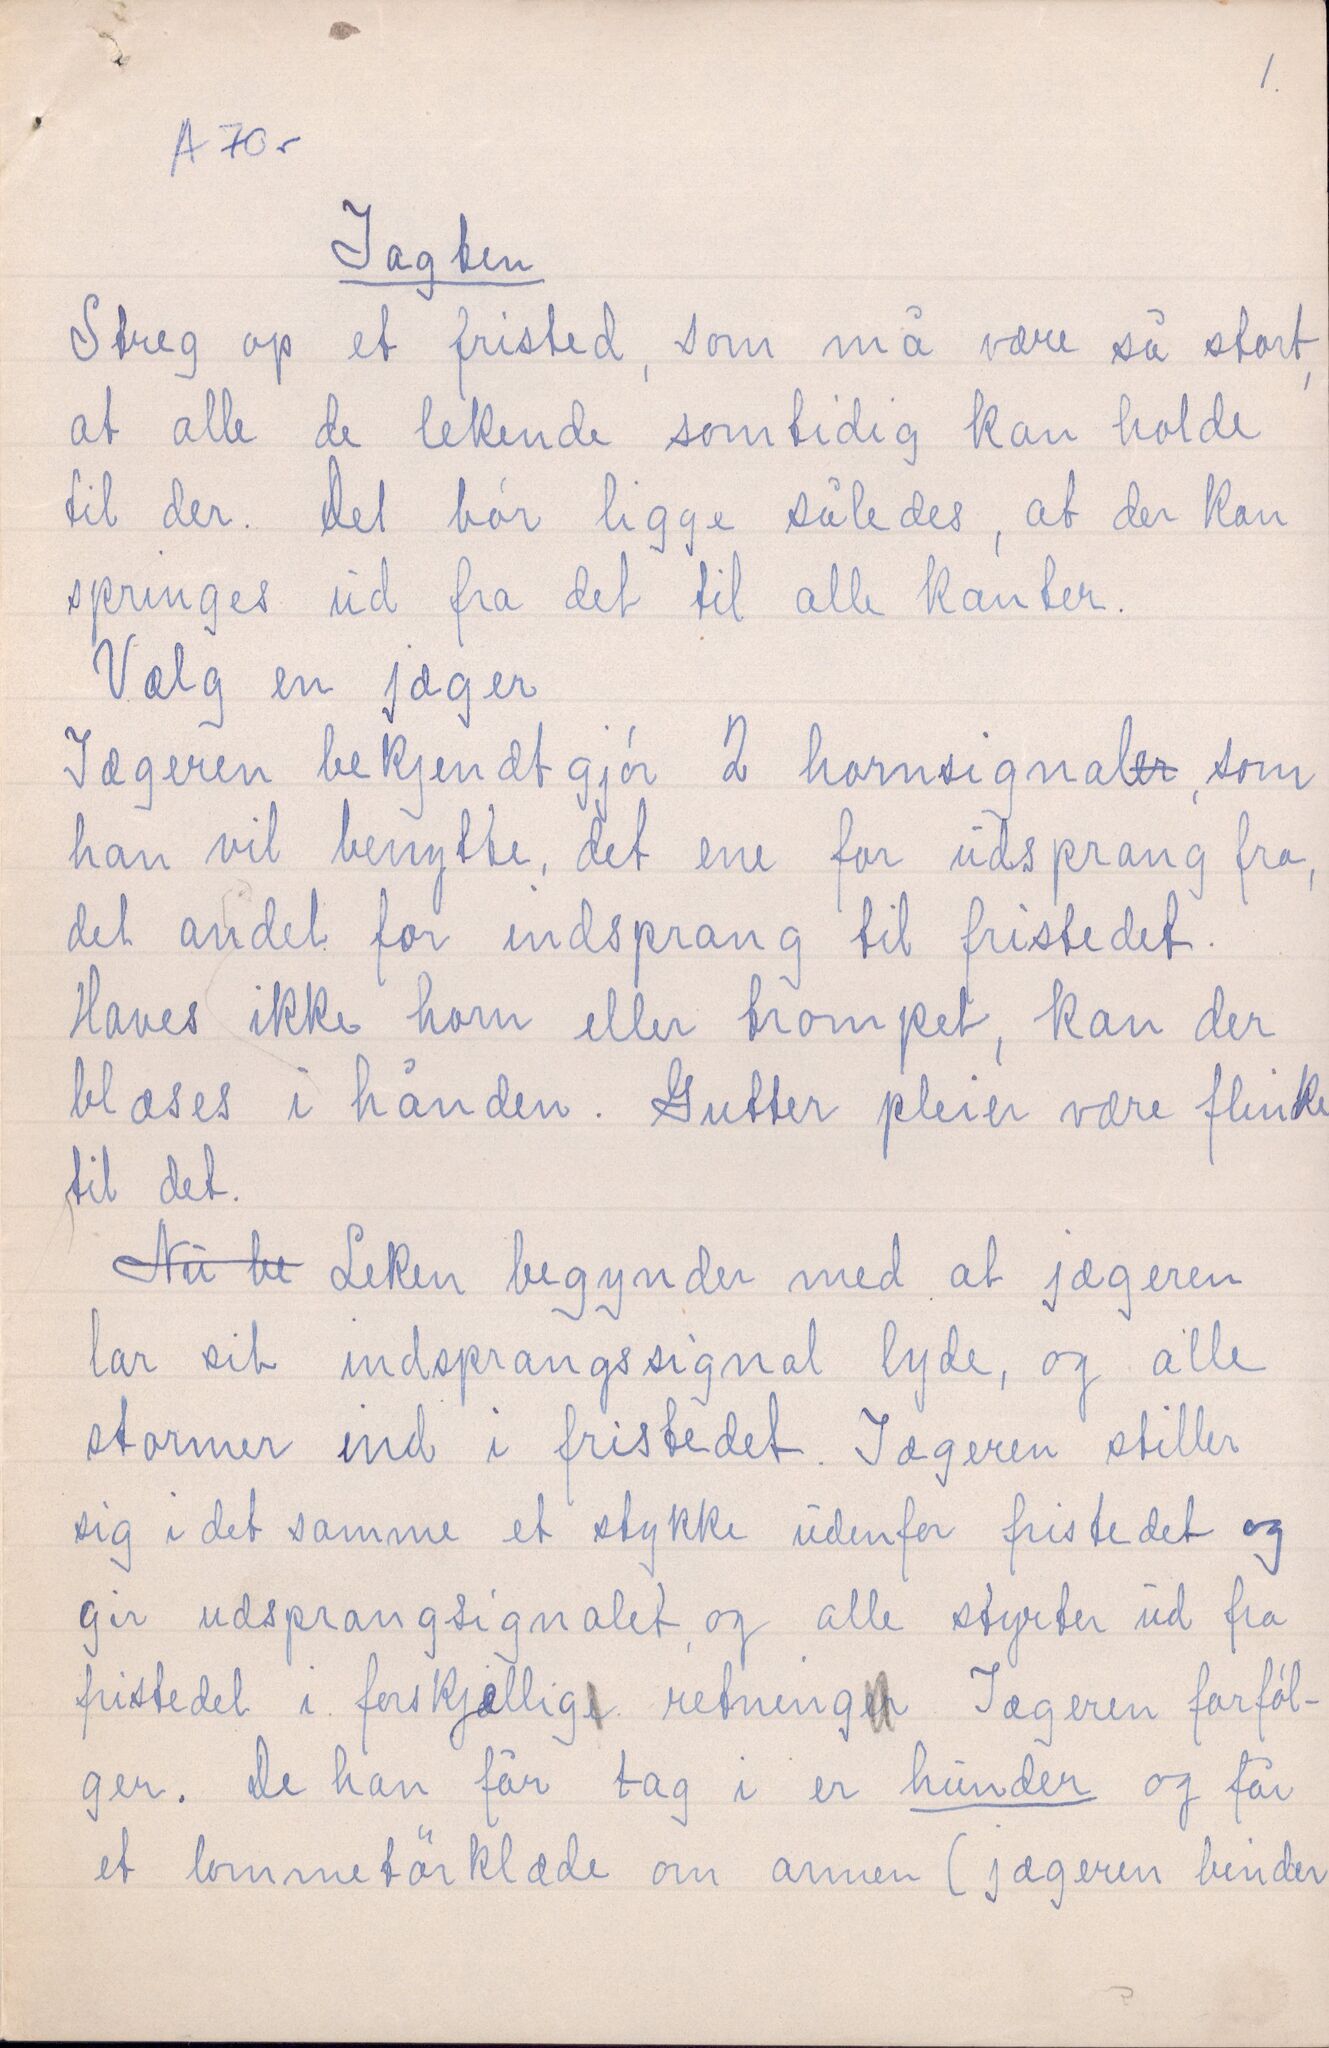 1.
A 70
Jagten
Streg op et fristed, som må være så stort,
at alle de lekende somtidig kan holde
til der. Det bór ligge således, at der kan
springes ud fra det til alle kanter.
Vælg en jæger
Jægeren bekjendtgjór 2 hornsignaler, som
han vil benytte, det ene for udsprang fra,
det andet for indsprang til fristedet.
Haves ikke horn eller trompet, kan der
blæses i hånden. Gutter pleier være flinke
til det.
Nu be Leken begynder med at jægeren
lar sit indsprangssignal lyde, og alle
stormer ind i fristedet. Jægeren stiller
sig i det samme et stykke udenfor fristedet og
gir udsprangsignalet, og alle styrter ud fra
fristedet i forskjellige retninger Jægeren forföl-
ger. De han får tag i er hunder og får
et lommetörklæde om armen (jægeren binder